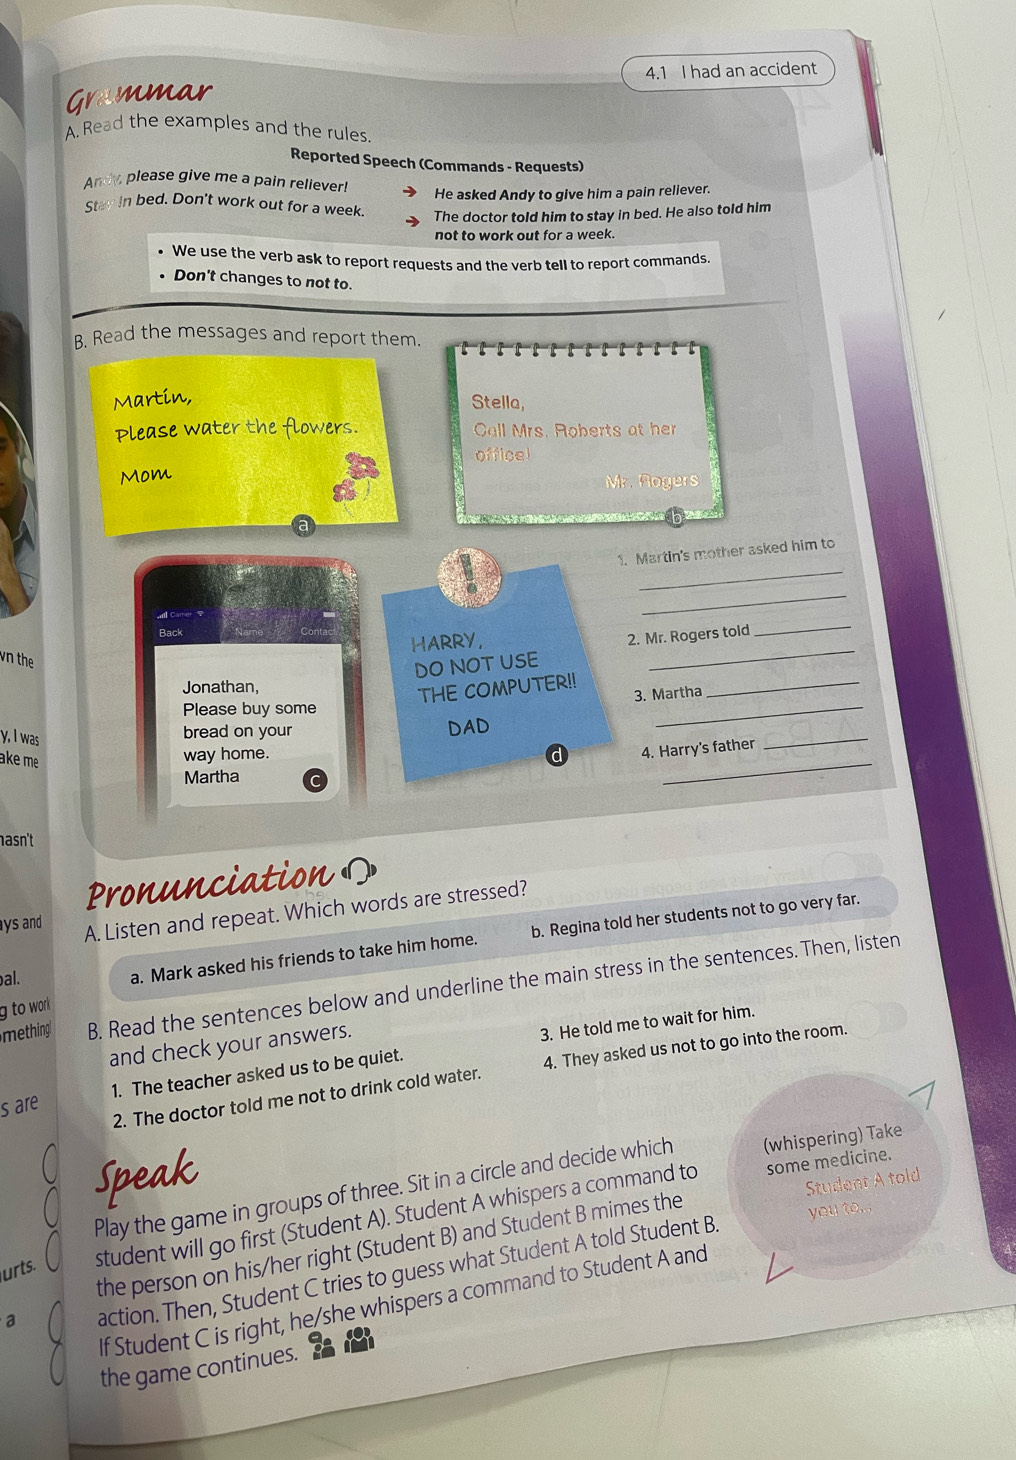 4.1 I had an accident
Grammar
A. Read the examples and the rules.
Reported Speech (Commands - Requests)
Andy, please give me a pain reliever!
He asked Andy to give him a pain reliever.
Stay in bed. Don't work out for a week.
The doctor told him to stay in bed. He also told him
not to work out for a week.
• We use the verb ask to report requests and the verb tell to report commands.
• Don't changes to not to.
B. Read the messages and report them.
Martin,
Please water the flowers.
Mom
a
Stella,
Call Mrs. Roberts at her
office!
Mr. Rogers
b
Carrier
Back Name Contact
Jonathan,
Please buy some
bread on your
way home.
Martha
c
!
HARRY,
DO NOT USE
THE COMPUTER!!
DAD
d
1. Martin's mother asked him to
2. Mr. Rogers told
3. Martha
4. Harry's father
Pronunciation
A. Listen and repeat. Which words are stressed?
a. Mark asked his friends to take him home.
b. Regina told her students not to go very far.
B. Read the sentences below and underline the main stress in the sentences. Then, listen
and check your answers.
1. The teacher asked us to be quiet.
2. The doctor told me not to drink cold water.
3. He told me to wait for him.
4. They asked us not to go into the room.
Speak
Play the game in groups of three. Sit in a circle and decide which
student will go first (Student A). Student A whispers a command to
the person on his/her right (Student B) and Student B mimes the
action. Then, Student C tries to guess what Student A told Student B.
If Student C is right, he/she whispers a command to Student A and
the game continues.
(whispering) Take
some medicine.
Student A told
you to...
wn the
y, I was
ake me
hasn't
ays and
g to work
omething
s are
urts.
a